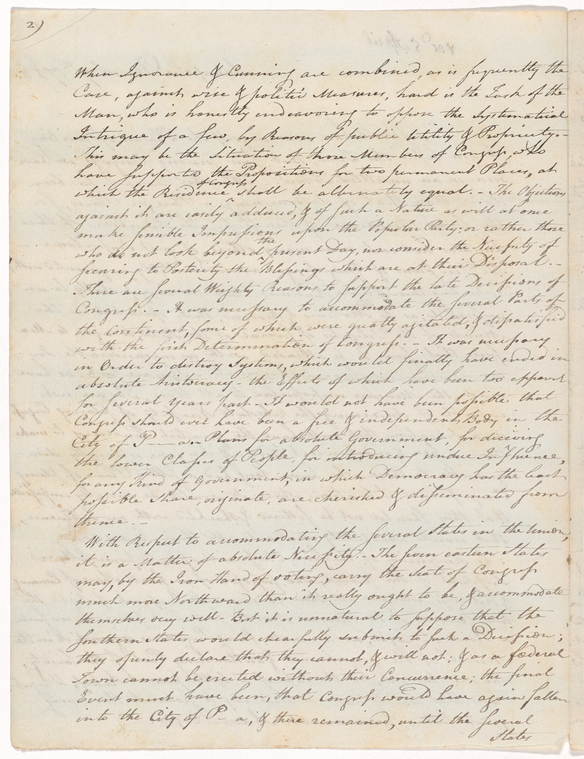 2)
When Ignorance & Cunning are combined, as is frequently the
Case, against wise & politic Measures, hard is the Task of the
Man, who is honestly endeavoring to oppose the Systematical
Intrigue of a few, by Reasons of public Utility & Propriety.—
This may be the Situation of those Members of Congress, who
have supported the Propositions for two permanent Places, at
which the Residence of Congress shall be alternately equal.— The Objections
against it are easily adduced, & of such a Nature as will at once
make sensible Impressions upon the Popular Party; or rather those
who do not look beyond the present Day, nor consider the Necessity of
securing to Posterity the Blessings which are at their Disposal.—
There are several Weighty Reasons to support the late Decisions of
Congress.— It was necessary to accommodate the several Parts of
the Continent, some of which were greatly agitated, & dissatisfied
with the first Determination of Congress.— It was necessary
in Order to destroy Systems, which would finally have ended in
absolute Aristocracy— the Effects of which have been too apparent
for several Years past.— It would not have been possible that
Congress should ever have been a free & independent Body in the
City of P——a.— Plans for absolute Government, for deceiving
the lower Classes of People, for introducing undue Influence,
for any Kind of Government, in which Democracy has the least
possible Share, originate, are cherished & disseminated from
thence.—
With Respect to accommodating the several States in the Union,
it is a Matter of absolute Necessity.— The seven eastern States
may, by the Iron Hand of voting, carry the Seat of Congress
much more Northward than it really ought to be, & accommodate
themselves very well— But it is unnatural to suppose that the
Southern States would chearfully submit to such a Decision;
they openly declare that they cannot, & will not; & as a fœderal
Town cannot be erected without their Concurrence; the final
Event must have been, that Congress would have again fallen
into the City of P——a; & there remained, until the several
States